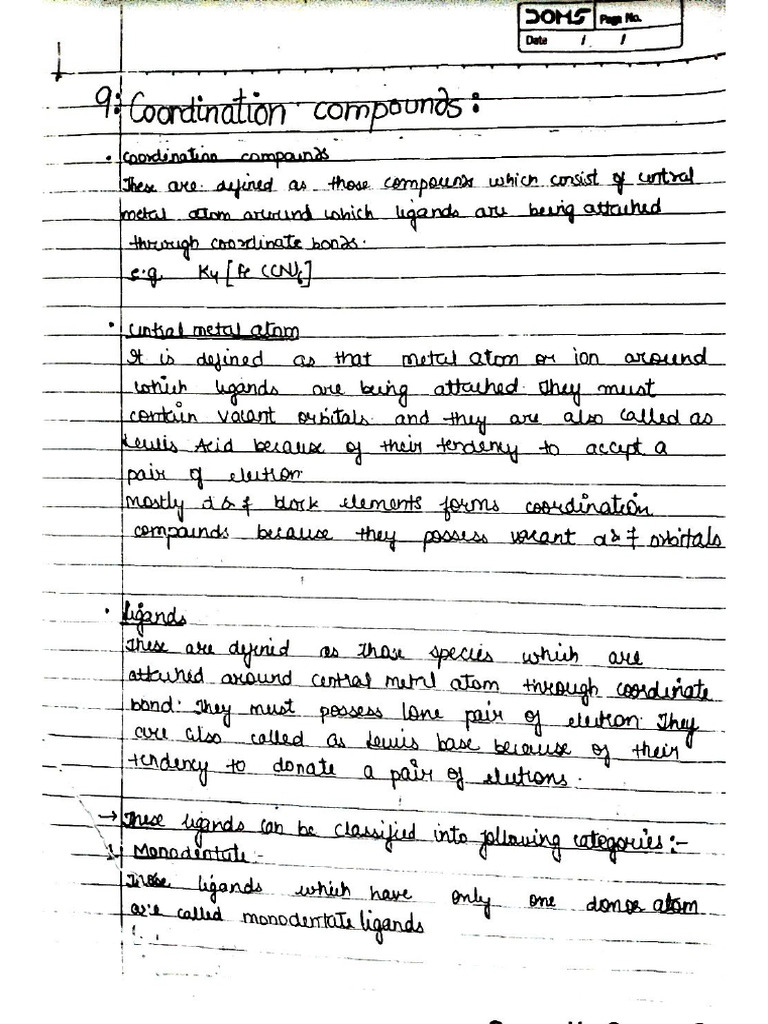 DOMS Page No.
Date / /
9: Coordination compounds:
• Coordination compounds
These are defined as those compounds which consist of central
metal atom around which ligands are being attached
through coordinate bonds.
e.g. K4[Fe(CN)6]
• Central metal atom
It is defined as that metal atom or ion around
which ligands are being attached. They must
contain vacant orbitals and they are also called as
Lewis Acid because of their tendency to accept a
pair of electron.
Mostly d & f block elements forms coordination
compounds because they possess vacant d & f orbitals
• Ligands
These are defined as those species which are
attached around central metal atom through coordinate
bond. They must possess lone pair of electron. They
are also called as Lewis base because of their
tendency to donate a pair of eletions.
→ These ligands can be classified into following categories:-
1. Monodentate:-
Those ligands which have only one donor atom
are called monodentate ligands